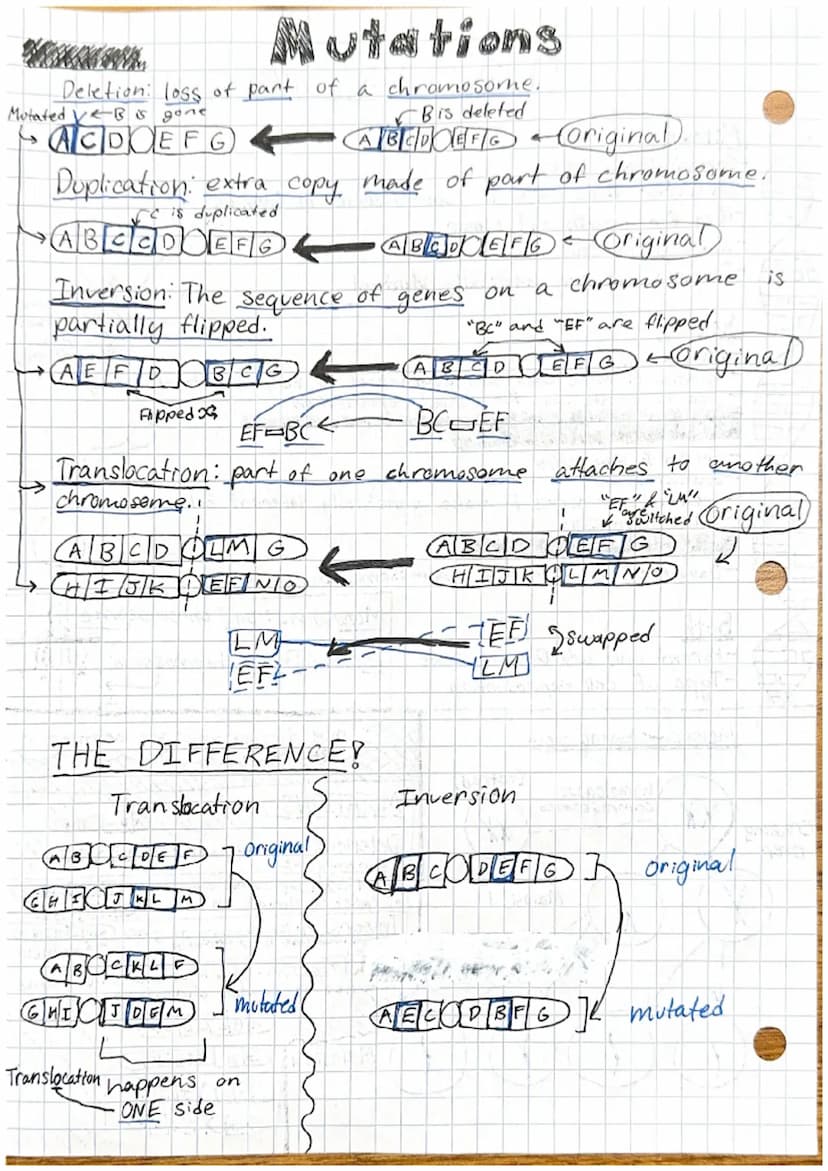 Mutations
Deletion: loss of part of a chromosome.
Mutated ← B is gone
B is deleted
A C D E F G
A B C D E F G
Original
Duplication: extra copy made of part of chromosome.
C is duplicated
A B C C D E F G
A B C D E F G
Original
Inversion: The sequence of genes on a chromosome is
partially flipped.
"BC" and "EF" are flipped
A E F D B C G
A B C D E F G
Original
Flipped
EF BC
BC EF
Translocation: part of one chromosome attaches to another
chromosome.
"EF" & "LM"
are
switched
Original
A B C D L M G
A B C D E F G
H I J K E F N O
H I J K L M N O
LM
EF
EF
LM
swapped
THE DIFFERENCE!
Translocation
Inversion
A B C D E F
original
G H I J K L M
A B C D E F G
original
A B C K L F
G H I J D E M
mutated
A E C D B F G
mutated
Translocation happens on
ONE side